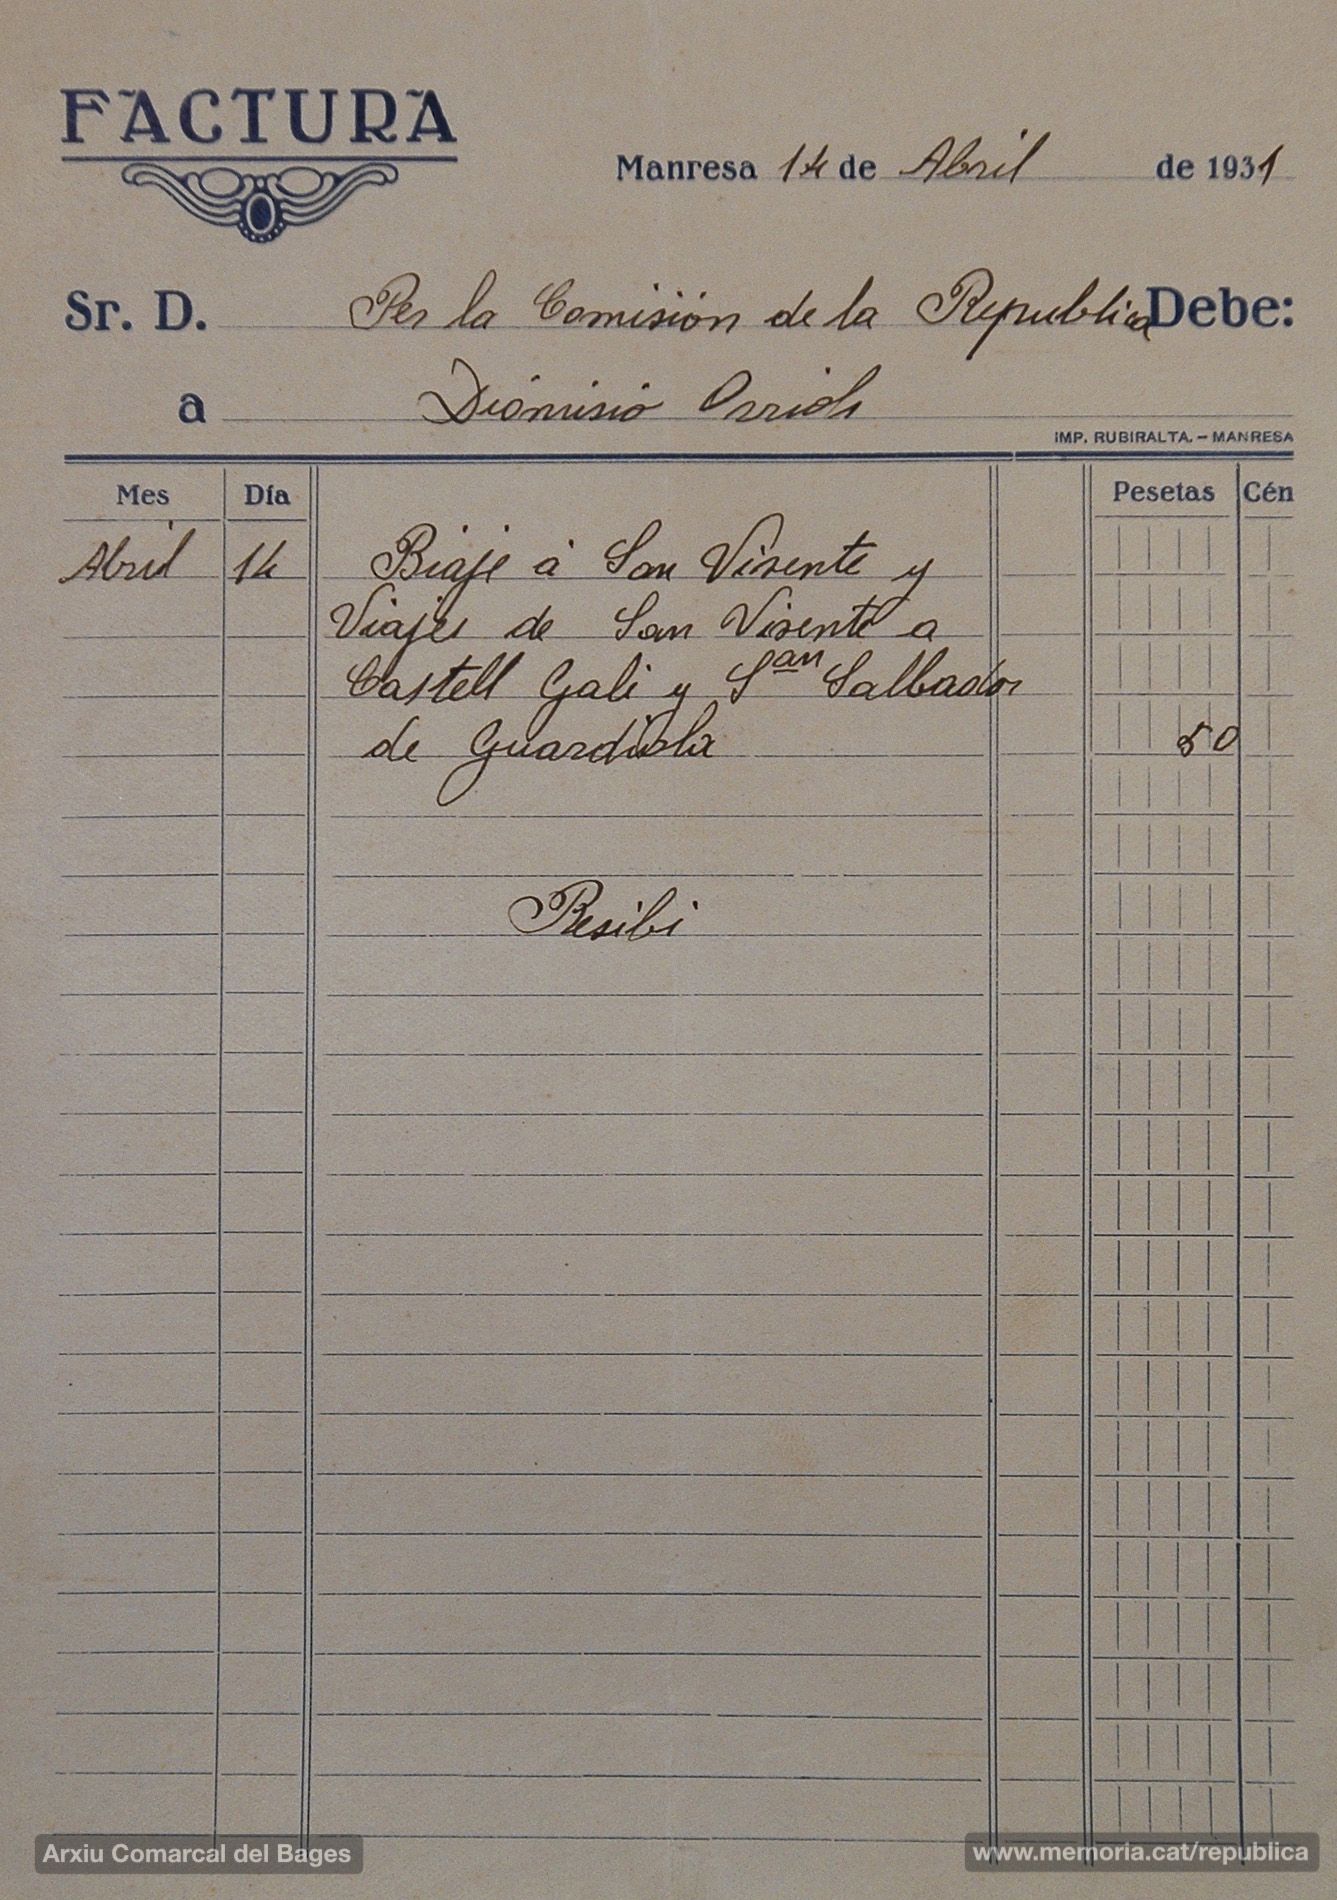 FACTURA
Manresa 14 de Abril de 1931
Sr. D. Per la Comisión de la Republica Debe:
a Dionisio Orriols
IMP. RUBIRALTA. - MANRESA
Mes Día Pesetas Cén
Abril 14 Biaje á San Visente y
Viajes de San Visente a
Castell Gali y San Salbador
de Guardiola 50
Resibi
Arxiu Comarcal del Bages www.memoria.cat/republica